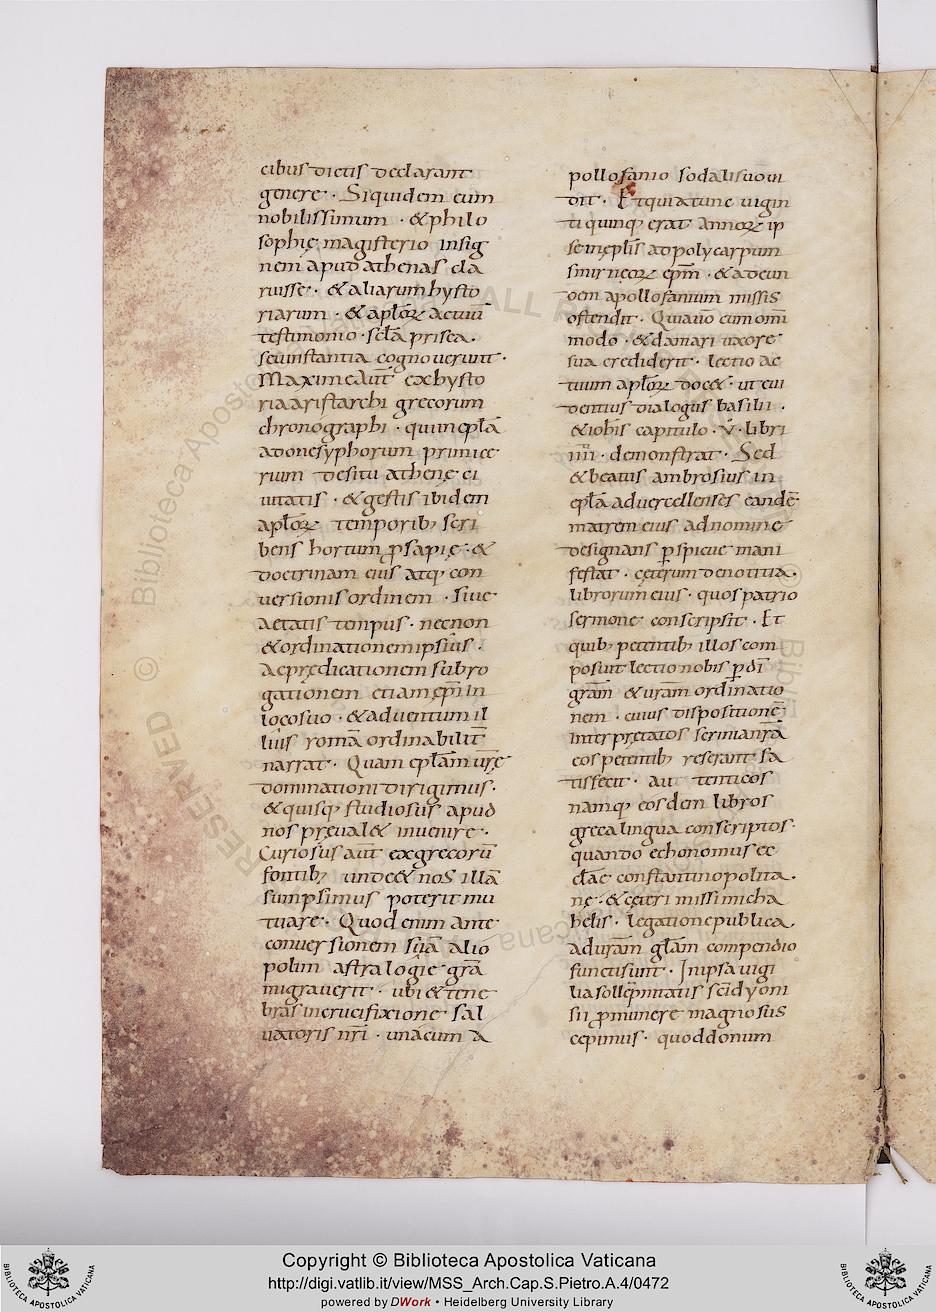 cibus dictis declarant
genere · Siquidem eum
nobilissimum · & philo
sophię magisterio insig
nem apud athenas cla
ruisse · & aliarum hysto
riarum · & aplõꝝ actuũ
testimonio · scĩa prisca ·
seu instantia cognouerunt ·
Maxime aũt ex hysto
ria aristarchi grecorum
chronographi · qui in eplã
ad onesyphorum primice
rium de situ athenę ci
uitatis · & gestis ibidem
aplõꝝ temporib; scri
bens hortum ꝓsapię · &
doctrinam eius atq; con
uersionis ordinem · siue
aetatis tempus · necnon
& ordinationem ipsius ·
ac prędicationem subro
gationem etiam ep̃i in
loco suo · & aduentum il
lius romã ordinabilit̃
narrat · Quam eplãm urẽ
dominationi dirigimus ·
& quisq; studiosus apud
nos pręual& inuenire ·
Curiosus aũt ex grecorũ
fontib; unde & nos illã
sumpsimus poterit mu
tuare · Quod enim ante
conuersionem suã alio
polim astralogię grã
migrauerit · ubi & tene
bras in crucifixione sal
uatoris nr̃i · una cum A
pollofanio sodali suo ui
dit · Et quia tunc uigin
ti quinq; erat annoꝝ ip
se in ep̃lis ad polycarpum
smirneoꝝ ep̃m · & ad eun
dem apollofanium missis
ostendit · Quia uõ cum om̃i
modo · & damari uxore
sua crediderit · lectio ac
tuum aplõꝝ doc& · ut eui
dentius dialogus basilii ·
& ioh̃is capitulo · v · libri
iiii · demonstrat · Sed
& beatus ambrosius in
eplã ad uercellenses eandẽ
matrem eius ad nomine
designans ꝑspicue mani
festat · ceterum de notitia ·
librorum eius · quos patrio
sermone conscripsit · Et
quib; petentib; illos com
posuit lectio nobis ꝑ dĩ
grãm & ur̃am ordinatio
nem · cuius dispositionẽ
interpretatos scrinia nr̃a
eos petentib; reserant sa
tisfecit · autenticos
namq; eosdem libros
greca lingua conscriptos ·
quando echonomus ec
cl̃ae constantinopolita ·
nę · & cęteri missi micha
helis · legatione publica ·
ad ur̃am gl̃am compendio
functi sunt · In ipsa uigi
lia sollẽpnitatis sc̃i dyoni
sii ꝓ munere magno sus
cepimus · quod donum
Copyright © Biblioteca Apostolica Vaticana
http://digi.vatlib.it/view/MSS_Arch.Cap.S.Pietro.A.4/0472
powered by DWork • Heidelberg University Library